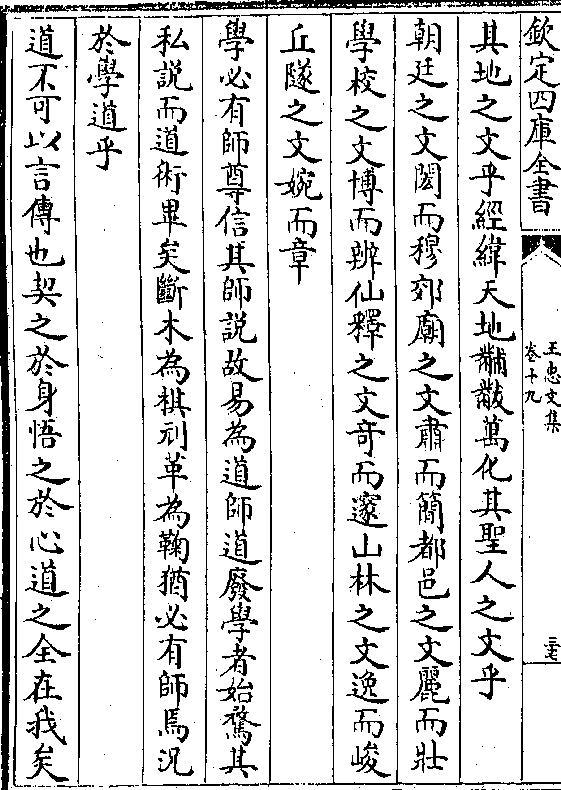 欽定四庫全書
王忠文集
卷十九
三七
其地之文乎經緯天地黼黻萬化其聖人之文乎
朝廷之文閎而穆郊廟之文肅而簡都邑之文麗而壯
學校之文博而辨仙釋之文奇而邃山林之文逸而峻
丘隧之文婉而章
學必有師尊信其師說故易為道師道廢學者始騖其
私説而道術畢矣斷木為棋刓革為鞠猶必有師焉况
於學道乎
道不可以言傳也契之於身悟之於心道之全在我矣